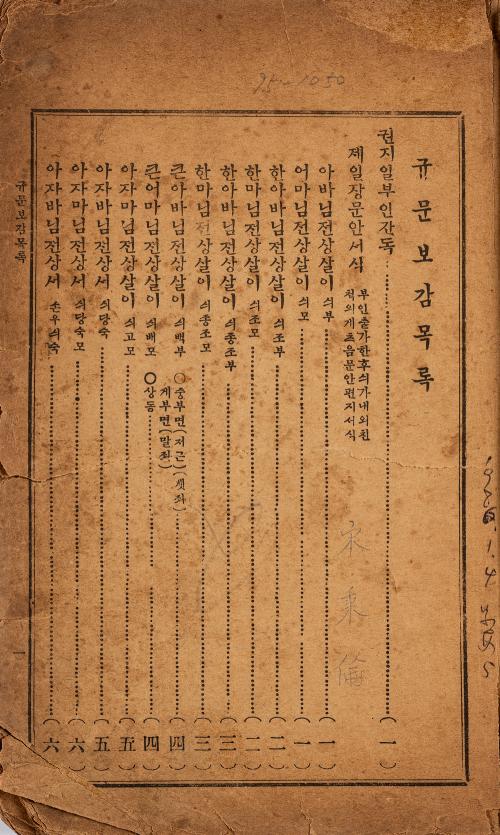 95-1050
규문보감목록
권지일부인간독 (一)
제일장문안서식 부인출가한후싀가내외친
척의게초음문안편지서식
아바님전상살이 싀부 (一)
어마님전상살이 싀모 (一)
한아바님전상살이 싀조부 (二)
한마님전상살이 싀조모 (二)
한아바님전상살이 싀종조부 (三)
한마님전상살이 싀종조모 (三)
큰아바님전상살이 싀백부 ○중부면(저근)(셋재) (四)
계부면(말좌)
큰어마님전상살이 싀백모 ○상동 (四)
아자마님전상살이 싀고모 (五)
아자바님전상서 싀당숙 (五)
아자마님전상서 싀당숙모 (六)
아자바님전상서 (六)
규문보감목록
一
宋秉倫